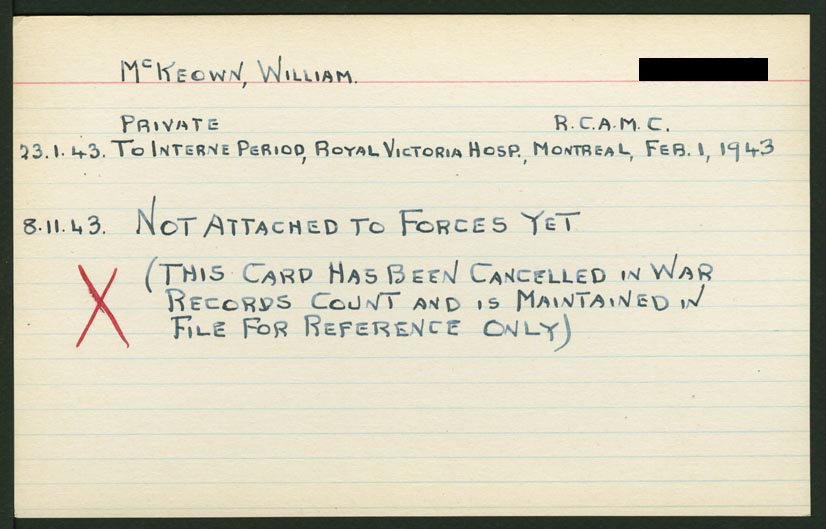 McKEOWN, WILLIAM.
PRIVATE R.C.A.M.C.
23.1.43. TO INTERNE PERIOD, ROYAL VICTORIA HOSP., MONTREAL, FEB. 1, 1943
8.11.43. NOT ATTACHED TO FORCES YET
(THIS CARD HAS BEEN CANCELLED IN WAR
RECORDS COUNT AND IS MAINTAINED IN
FILE FOR REFERENCE ONLY)